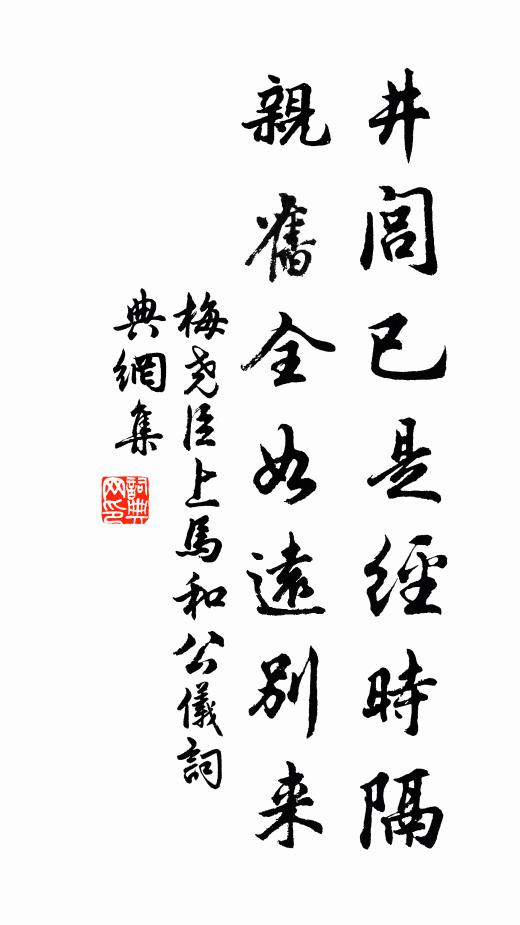 井閭已是經時隔
親舊全如遠別来
梅尧臣上馬和公儀詞
典網集
詞典
网印